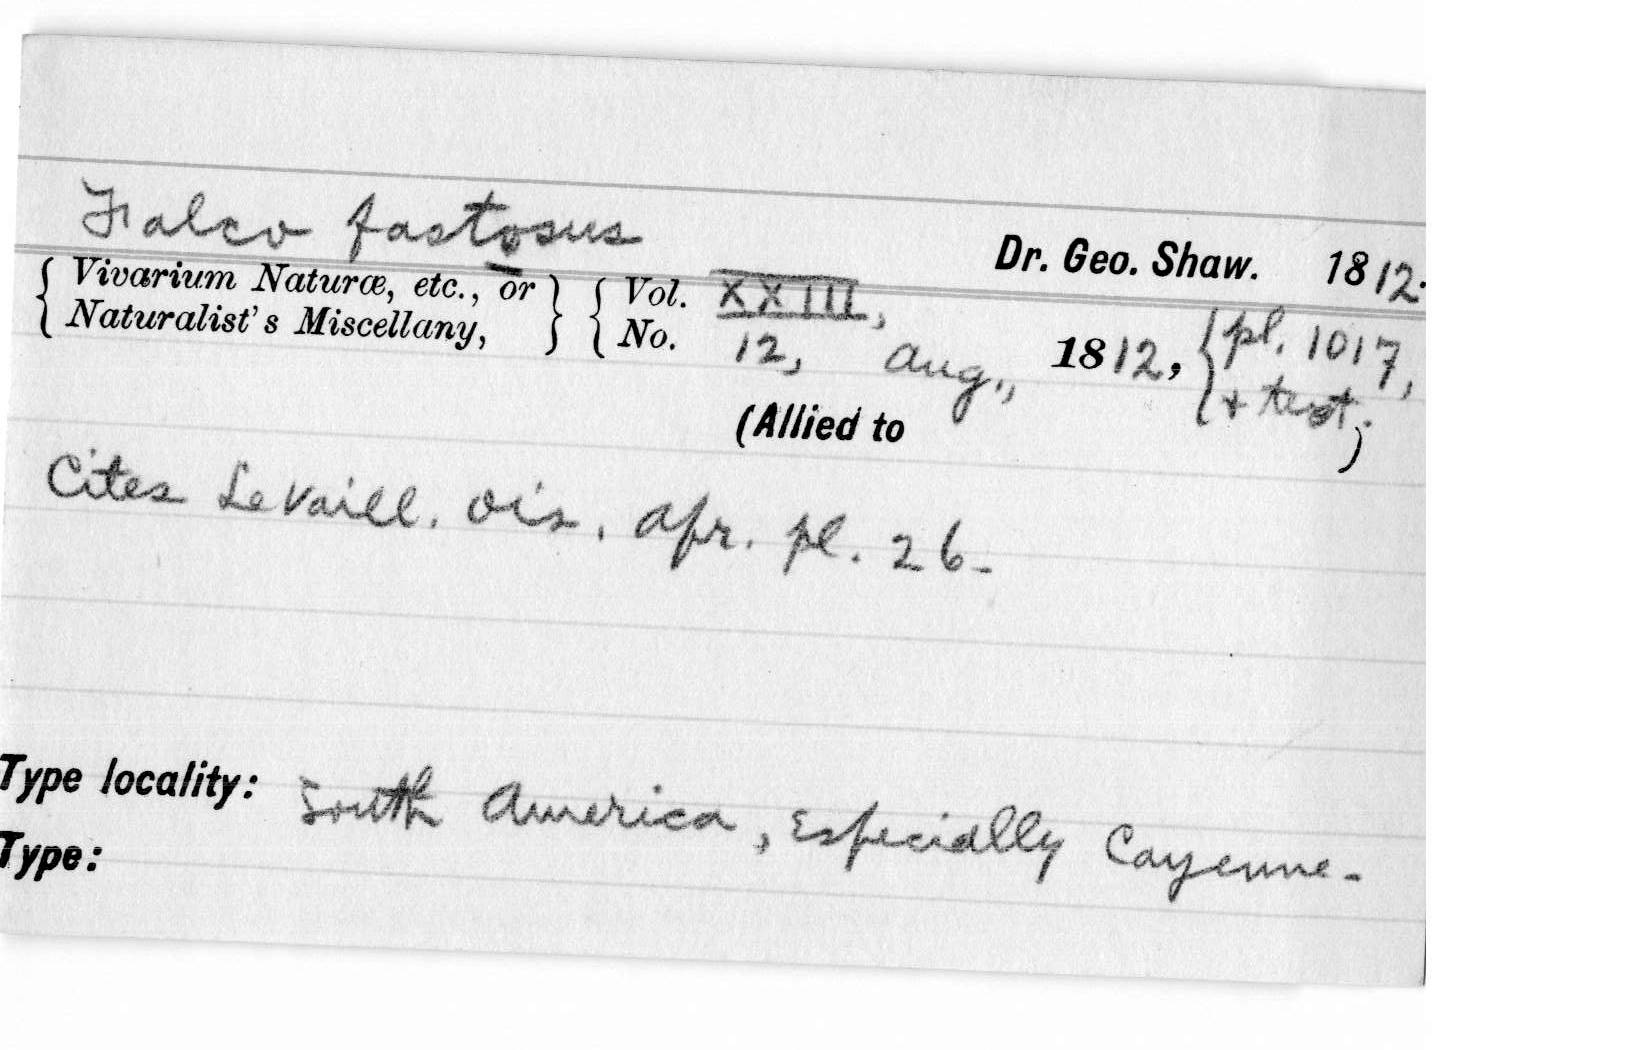 Falco fastosus
Dr. Geo. Shaw. 1812.
{ Vivarium Naturæ, etc., or } { Vol. XXIII,
{ Naturalist's Miscellany, } { No. 12, Aug., 1812, { pl. 1017,
{ + text.
(Allied to )
Cites LeVaill. Ois. Afr. pl. 26-
Type locality: South America, Especially Cayenne-
Type: